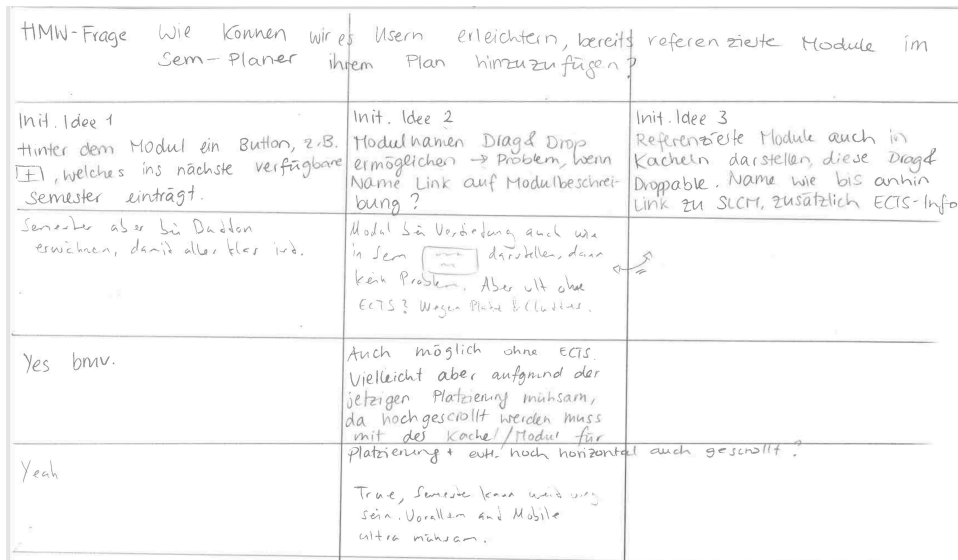 HMW-Frage Wie können wir es Usern erleichtern, bereits referenzierte Module im
Sem-Planer ihrem Plan hinzuzufügen?
Init. Idee 1
Hinter dem Modul ein Button, z.B.
[+], welches ins nächste verfügbare
Semester einträgt.
Init. Idee 2
Modulnamen Drag & Drop
ermöglichen → Problem, wenn
Name Link auf Modulbeschrei-
bung?
Init. Idee 3
Referenzieste Module auch in
Kacheln darstellen, diese Drag &
Droppable. Name wie bis anhin
Link zu SLCM, zusätzlich ECTS-Info
Semester aber bei Button
erwähnen, damit alles klar ist.
Modul bei auch wie
in Sem darstellen, dann
kein Problem. Aber ohne
ECTS? Wegen Platz &
Yes bmv.
Auch möglich ohne ECTS.
Vielleicht aber aufgrund der
jetzigen Platzierung mühsam,
da hochgescrollt werden muss
mit der Kachel/Modul für
Platzierung + evtl. noch horizontal auch gescrollt?
Yeah
True, Semester kann weit weg
sein. Vorallem Mobile
ultra mühsam.